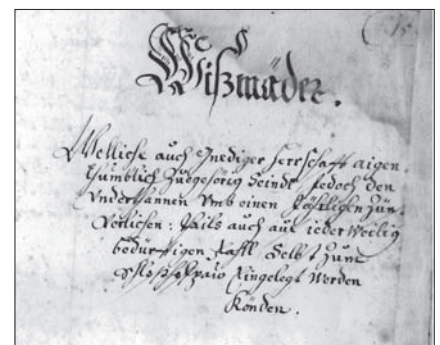 Wißmäder.
Welliche auch Gnediger Herrschafft aigen-
thumblich Zuegehörig Seindt, Jedoch den
Underthannen Umb einen Zünß
Verlichen: thails auch auf iederweilig
bedürfftigen fahl Selbst Zum
eingelegt Werden
Könden.